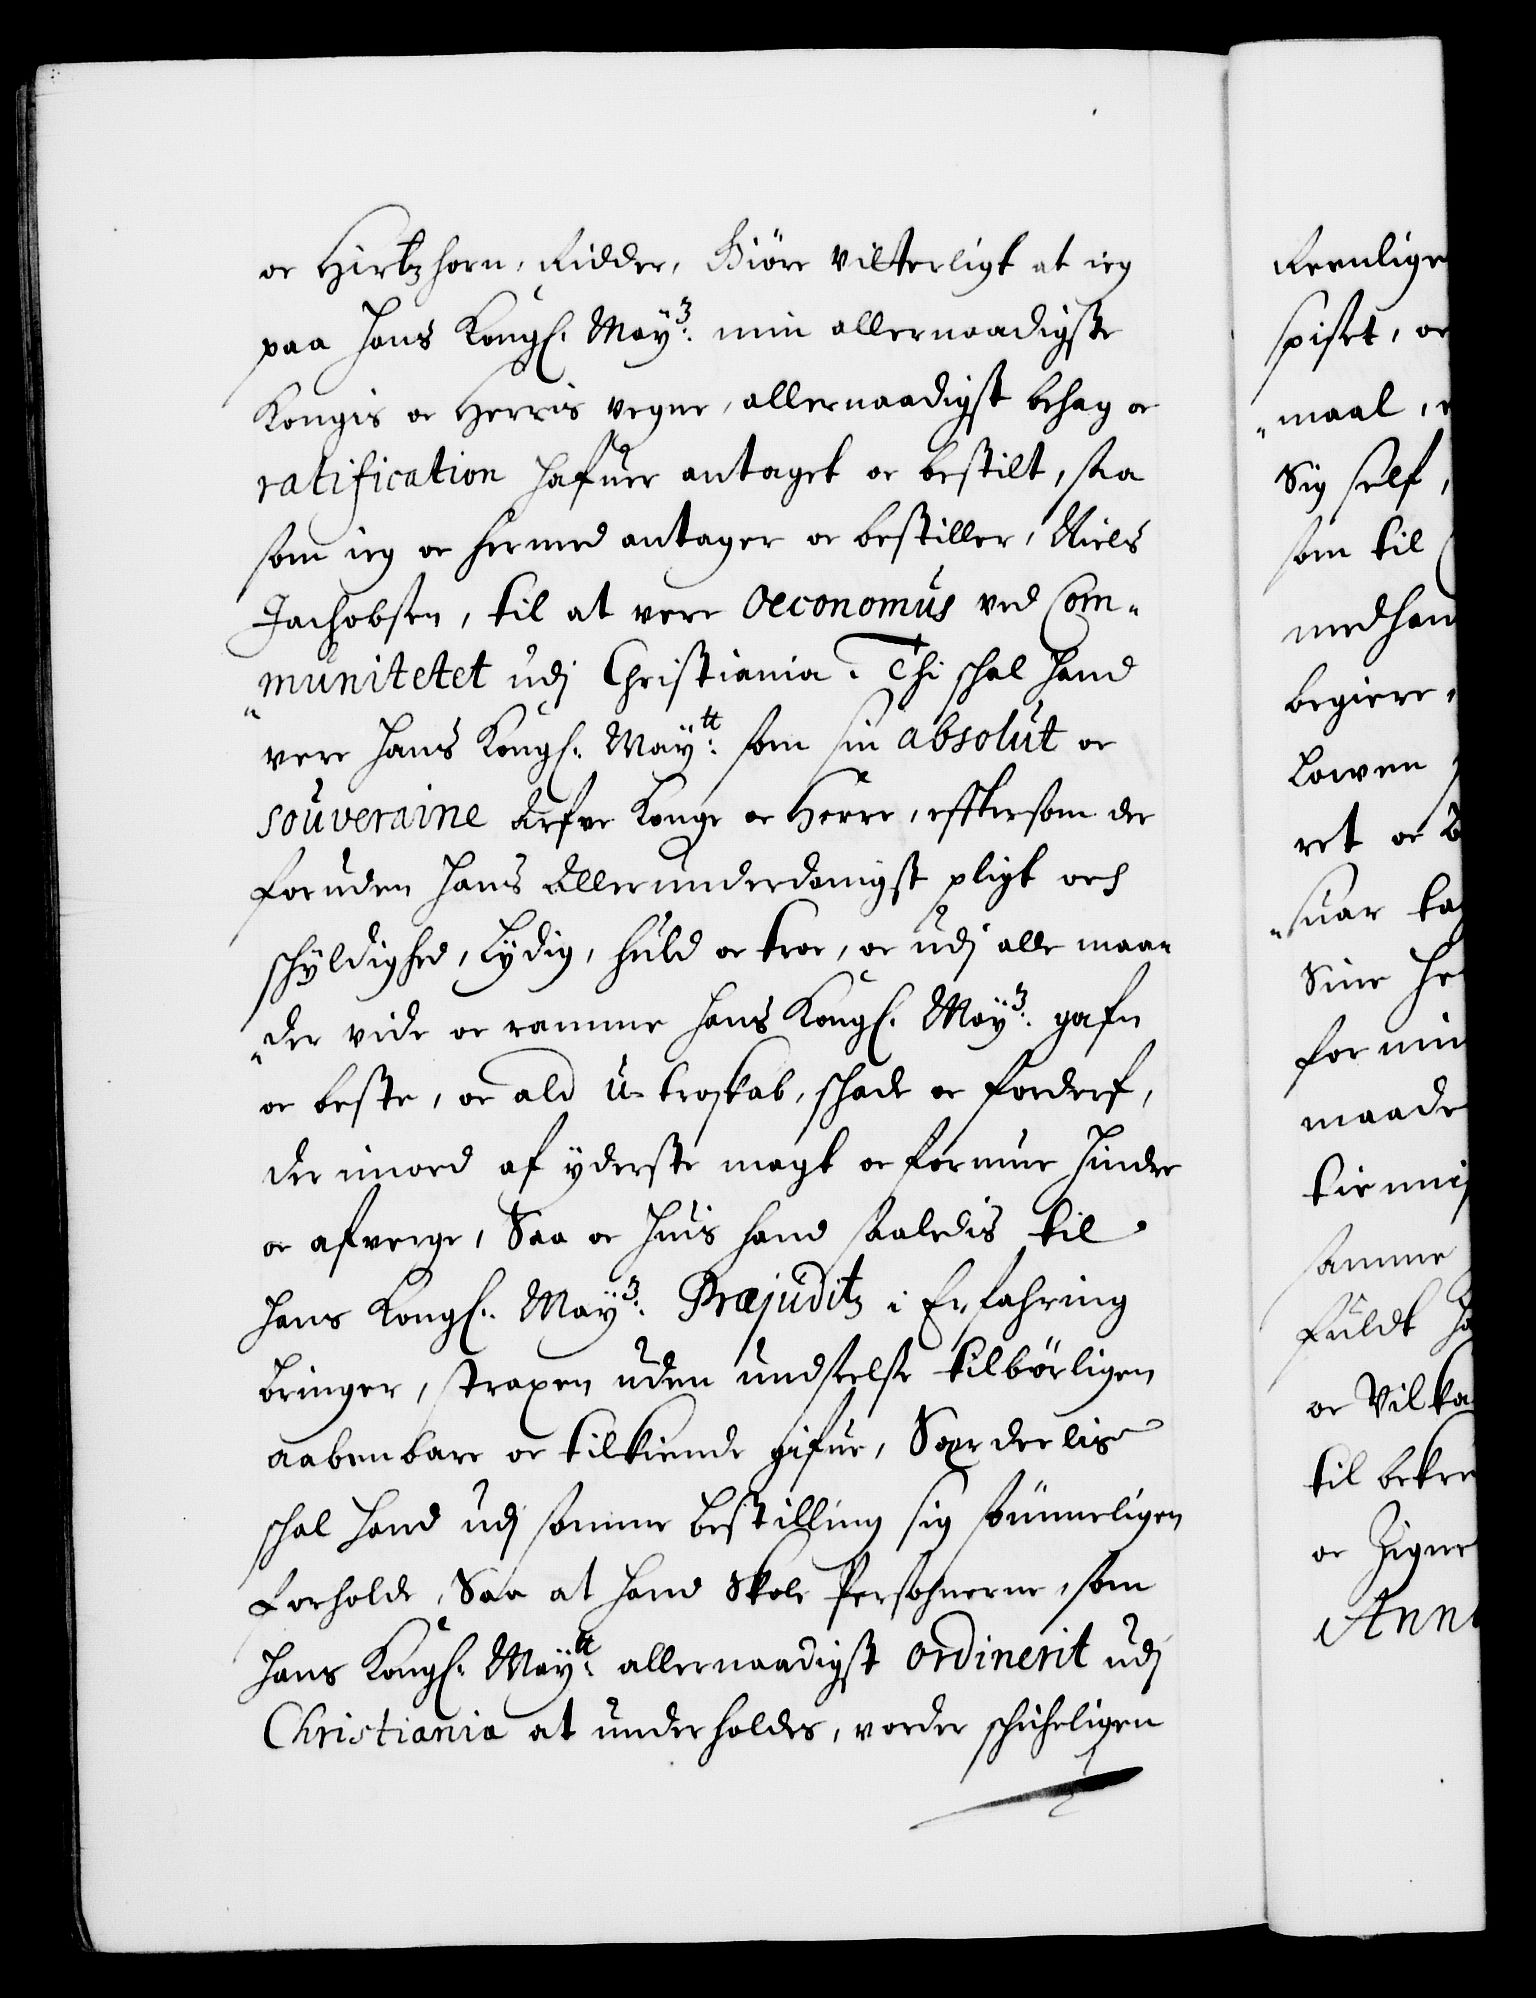 oc Hirtzhorn, Ridder, Giöre vitterligt at ieg
paa Hans Kongl. May3: min allernaadigste
Kongis oc Herris vegne, allernaadigst behag oc
ratification hafuer antaget oc bestilt, saa
som ieg oc hermed antager oc bestiller, Niels
Jachobsen, til at vere Oeconomus ved Com-
munitetet udj Christiania. Thi schal hand
vere Hans Kongl. Maytt: som sin absolut oc
souveraine Arfve Konge oc Herre, efftersom der
foruden hans allerunderdanigst pligt och
schÿldighed, Lÿdig, huld oc troe, oc udj alle maa-
der vide oc ramme Hans Kongl. May3: gafn
oc beste, oc ald U-troskab, schade oc forderf,
der imod af ÿderste magt oc formue hindre
oc afverge, Saa oc huis hand saaledis til
Hans Kongl. May3: Præjuditz i Erfahring
bringer, straxen uden undseelse tilbörligen
aabenbare oc tilkiende gifue, Særdeelis
schal hand udj samme bestilling sig saaledis
forholde, Saa at hand Skole Persohnerne, som
Hans Kongl. Maytt: allernaadigst ordinerit udj
Christiania at underholdes, vorder schicheligen
Reenlige
spiset, oc
maal,
Sig self,
som til
medhan
begiere,
Lowen
ret oc
suar ta
Sine he
for min
maade
tienniss
samme
fuldt ha
oc Vilka
til bekre
oc Zigne
Anno